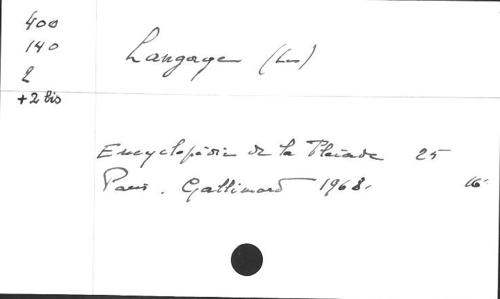 400
140
2
+2 bis
Langage (Le)
Encyclopédie de la Pléiade 25
Paris. Gallimard 1968. 16°